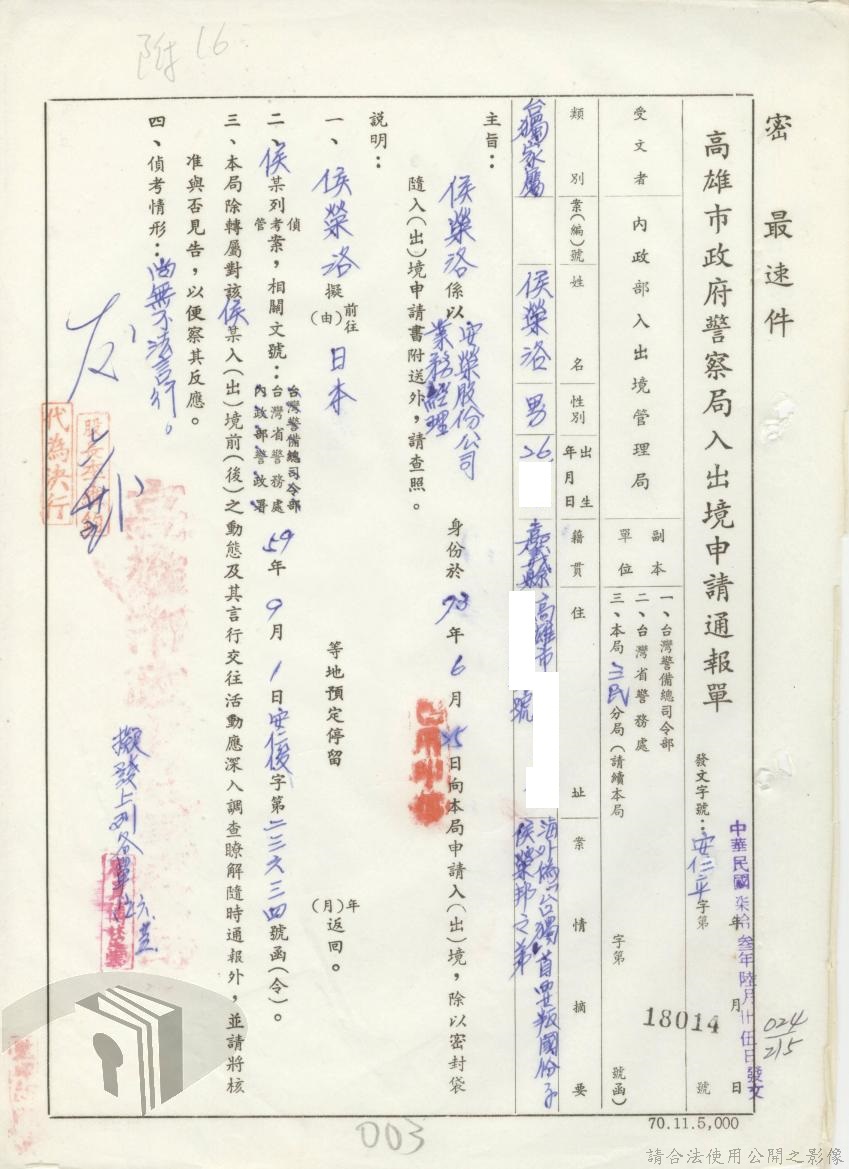 附16
密 最速件
高雄市政府警察局入出境申請通報單
中華民國柒拾叁年陸月廿伍日發文
發文字號：安仁平字第18014號
年 月 日
024
215
受文者 內政部入出境管理局
副本單位
一、台灣警備總司令部
二、台灣省警務處
三、本局三民分局（請續本局 字第 號函）
類別 案(編)號 姓名 性別 出生年月日 籍貫 住址 案情摘要
台獨家屬 侯榮洛 男 26. 嘉義縣 高雄市 號 海外偽台獨首要叛國份子侯榮邦之弟
主旨：侯榮洛係以安榮股份公司業務經理身份於73年6月25日向本局申請入(出)境，除以密封袋
隨入(出)境申請書附送外，請查照。
說明：
一、侯榮洛擬前往(由)日本 等地預定停留 年(月)返回。
二、侯某列偵管考案，相關文號：台灣警備總司令部台灣省警務處內政部警政署59年9月1日安緩字第二三六三四號函(令)。
三、本局除轉屬對該侯某入(出)境前(後)之動態及其言行交往活動應深入調查瞭解隨時通報外，並請將核
准與否見告，以便察其反應。
四、偵考情形：尚無不法言行。
代為決行
擬發上列各單
003
70.11.5,000
請合法使用公開之影像